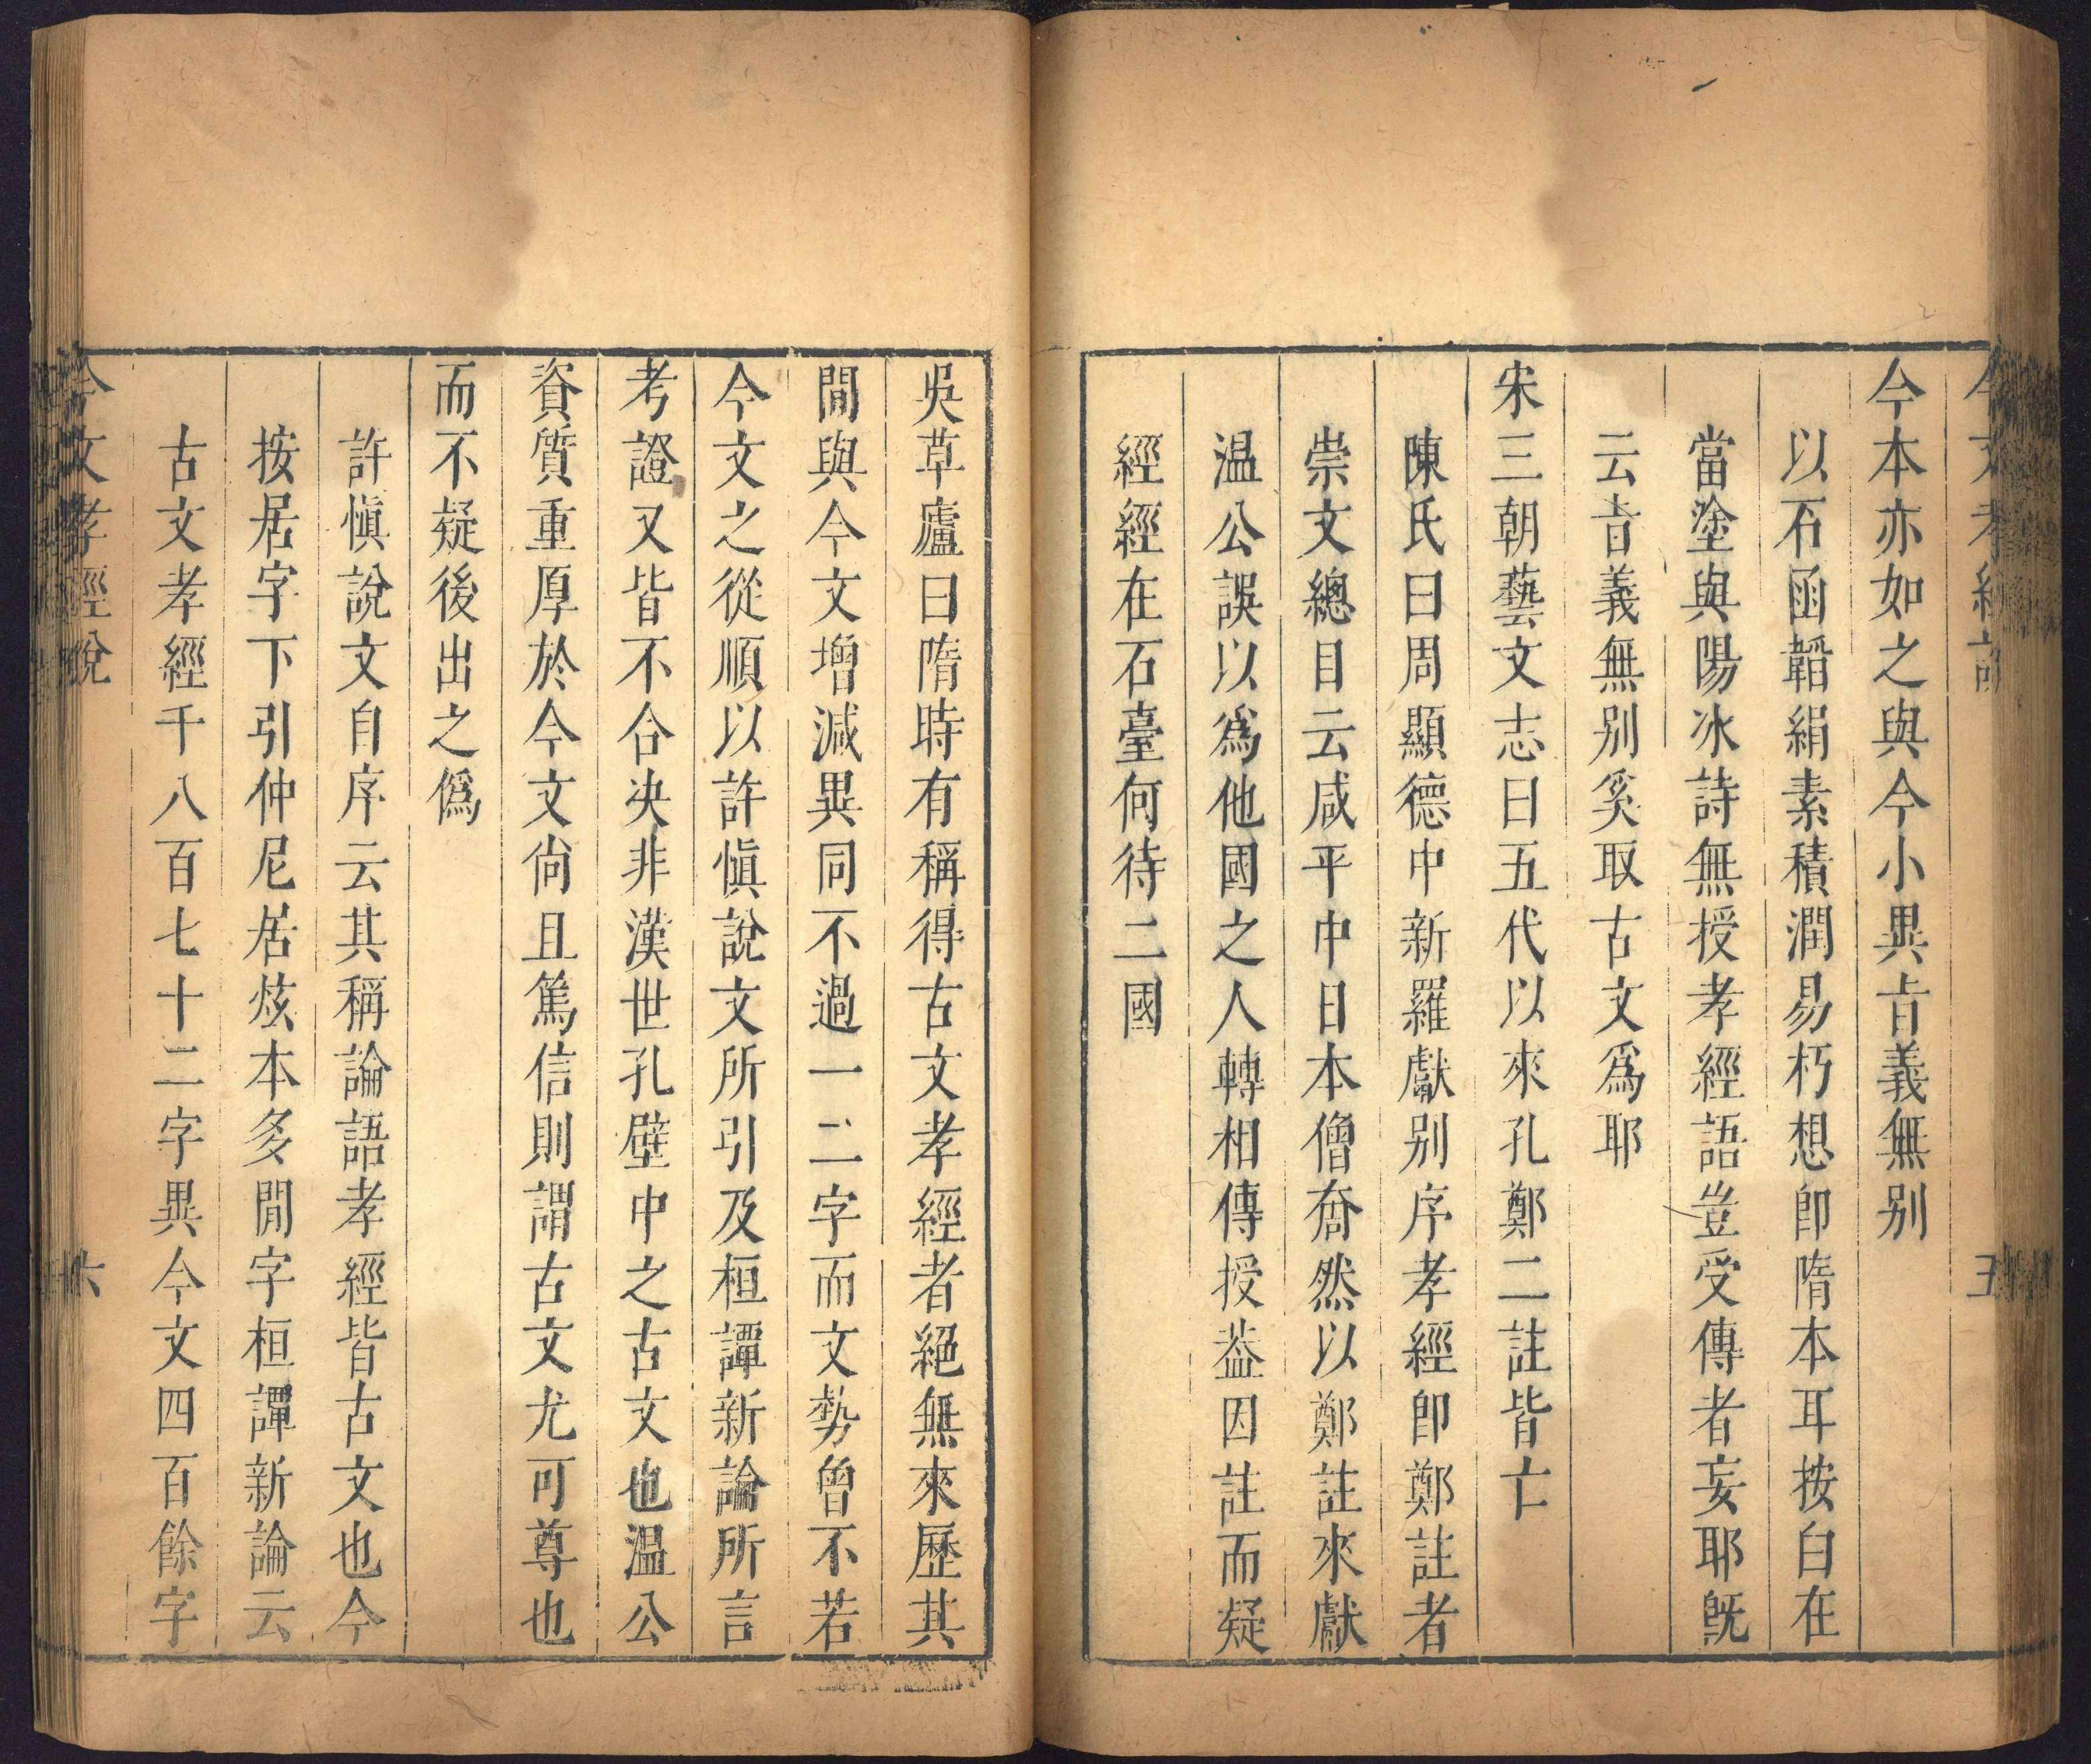 今文孝經說
五
今本亦如之與今小異㫖義無别
以石函韜絹素積潤易朽想卽隋本耳按白在
當塗與陽冰詩無授孝經語豈受傳者妄耶旣
云㫖義無别奚取古文爲耶
宋三朝藝文志曰五代以來孔鄭二註皆亡
陳氏曰周顯德中新羅獻别序孝經卽鄭註者
崇文總目云咸平中日本僧奝然以鄭註來獻
温公誤以爲他國之人轉相傳授葢因註而疑
經經在石臺何待二國
吳草廬曰隋時有稱得古文孝經者絕無來歷其
間與今文增減異同不過一二字而文勢曾不若
今文之從順以許愼說文所引及桓譚新論所言
考證又皆不合决非漢世孔壁中之古文也温公
資質重厚於今文尙且篤信則謂古文尤可尊也
而不疑後出之僞
許愼說文自序云其稱論語孝經皆古文也今
按居字下引仲尼居炫本多閒字桓譚新論云
古文孝經千八百七十二字異今文四百餘字
今文孝經說
六